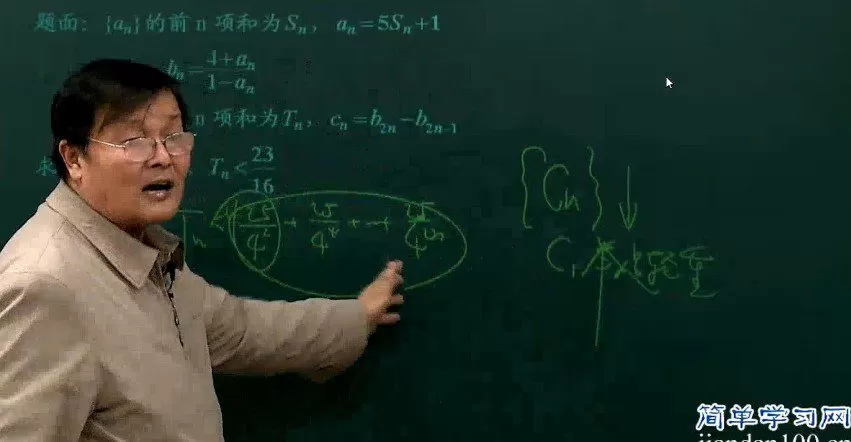 题面: {aₙ}的前n项和为Sₙ, aₙ=5Sₙ+1
bₙ=4+aₙ/1−aₙ
n项和为Tₙ, cₙ=b₂ₙ−b₂ₙ₋₁
求 Tₙ<23/16
Tₙ < 25/4² + 25/4⁴ + ⋯ + 25/4²ⁿ
{Cₙ} ↓
C₁
简单学习网
jiandan100.cn